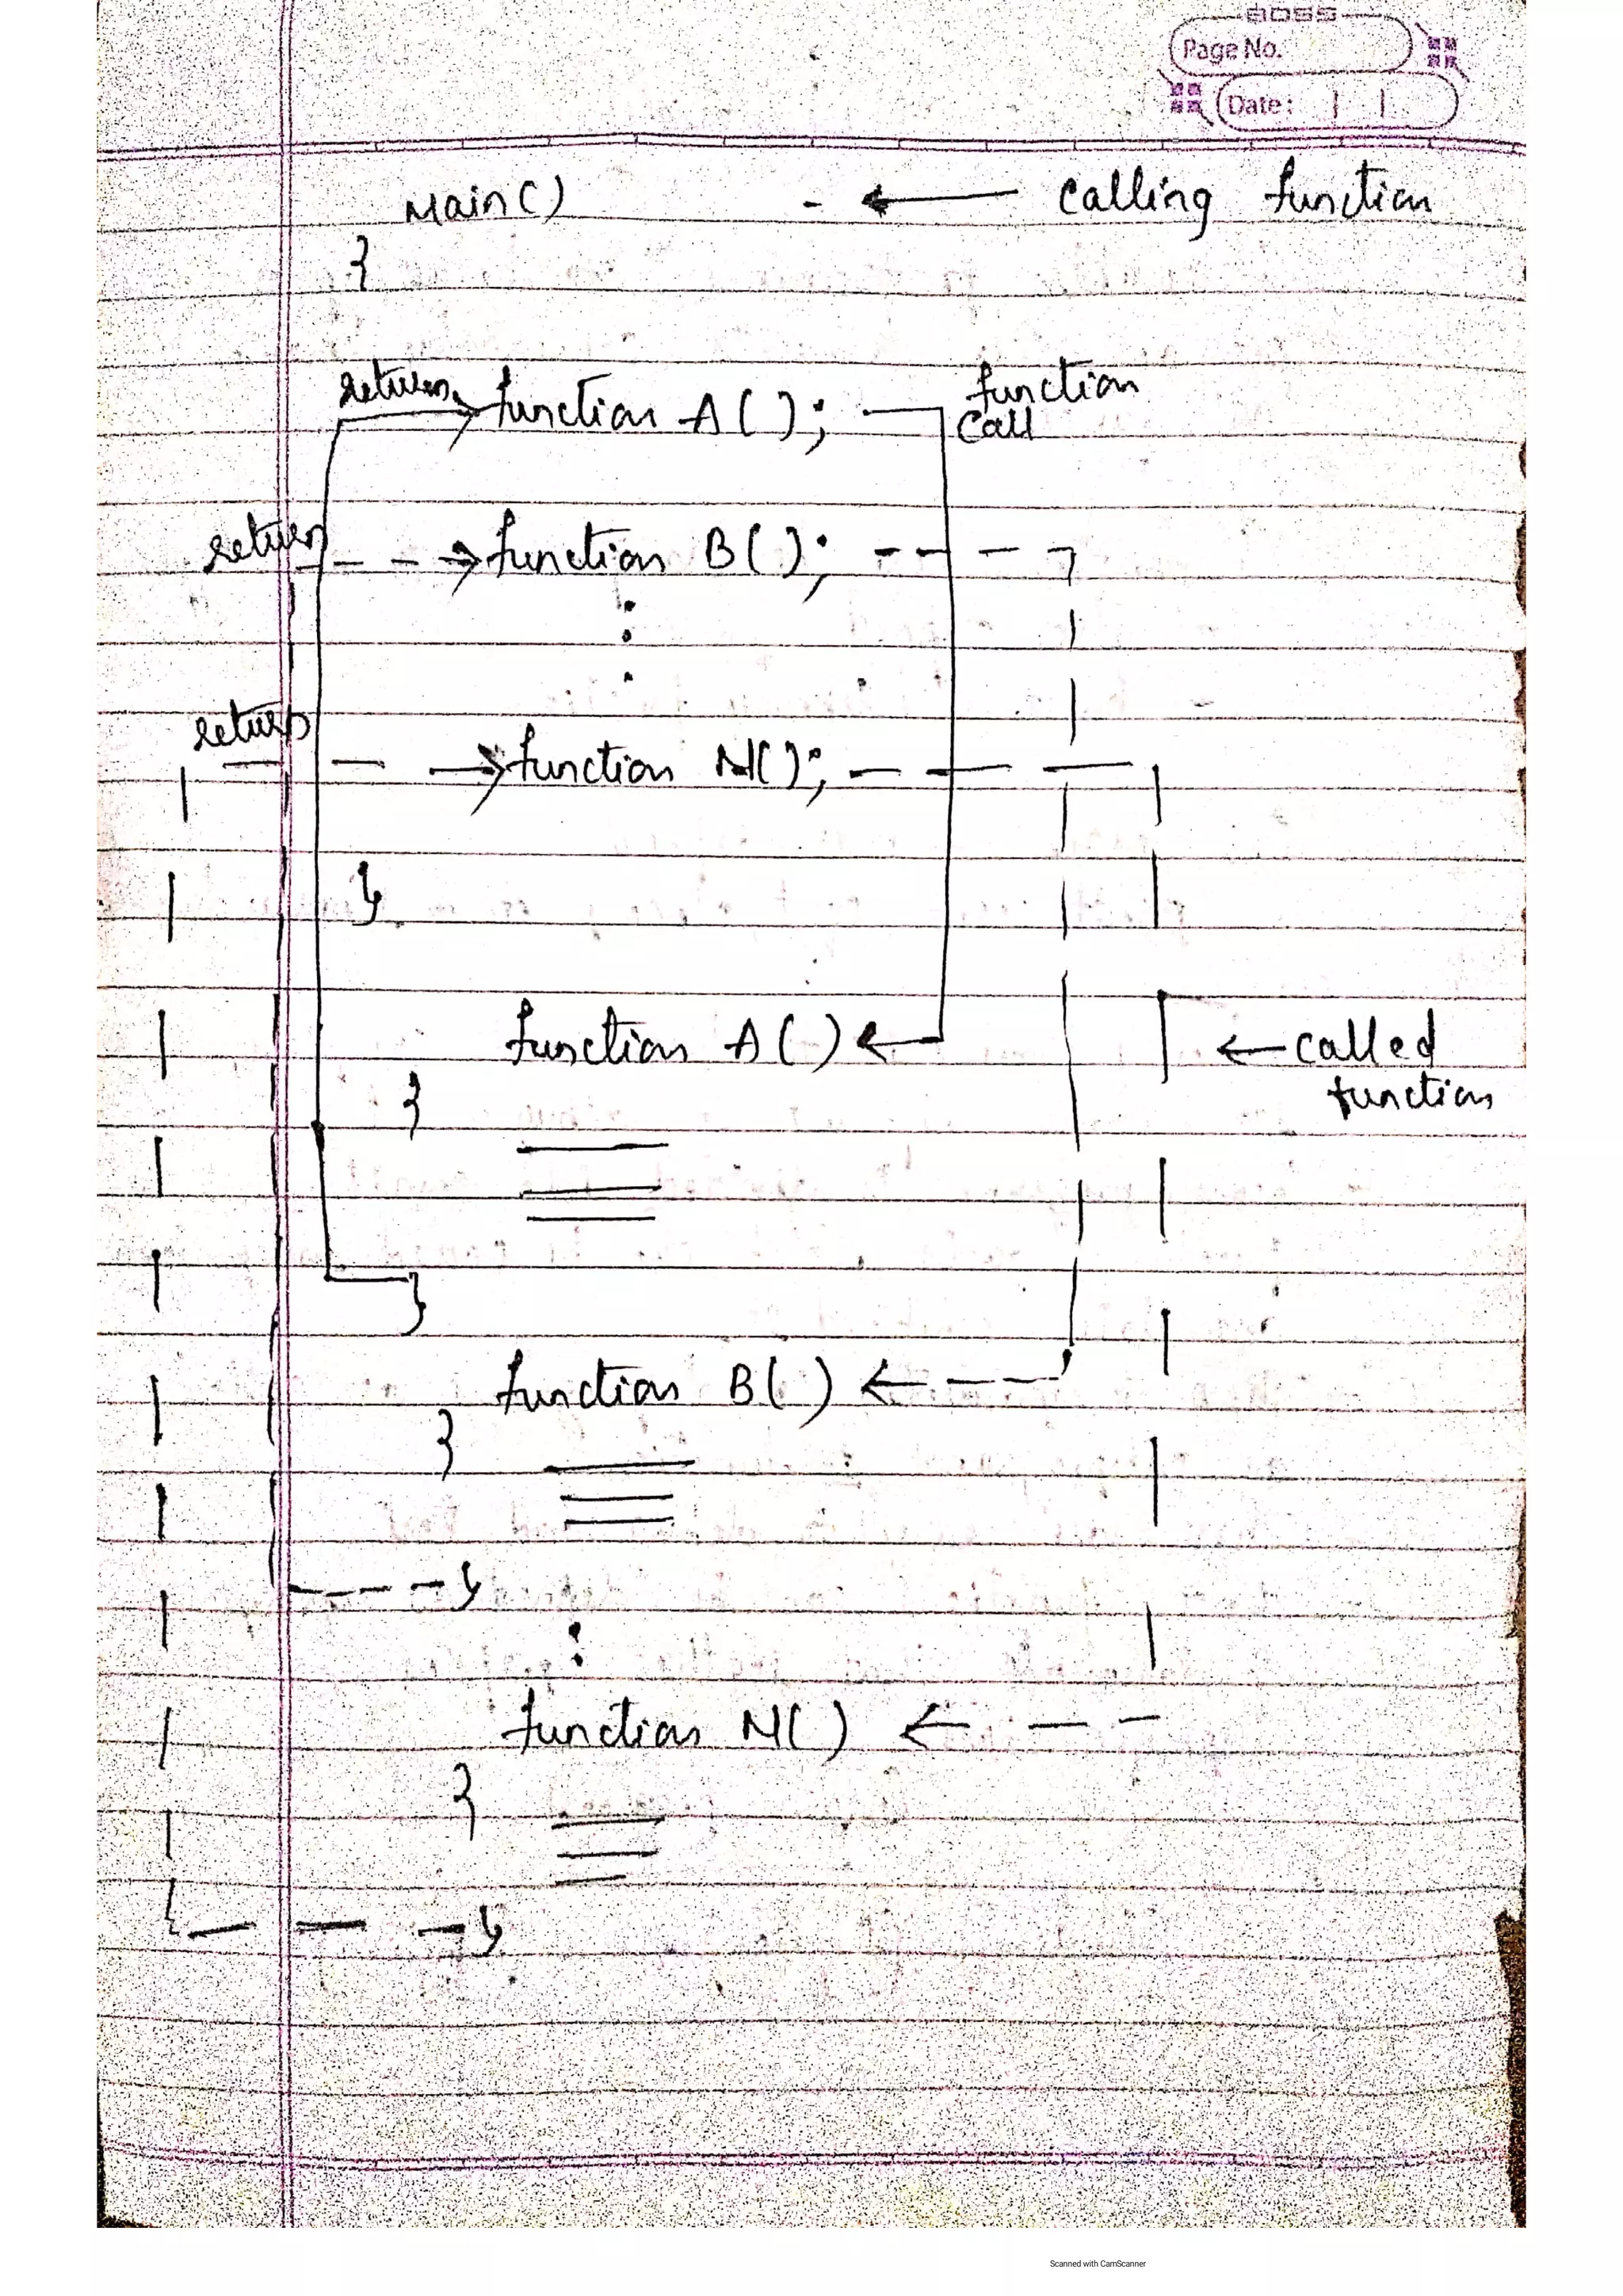 BOSS
Page No.
Date:
Main() ← calling function
{
return → function A(); function
call
return → function B();
return → function N();
}
function A() ← ← called
function
{
}
function B() ←
{
}
function N() ←
{
}
Scanned with CamScanner